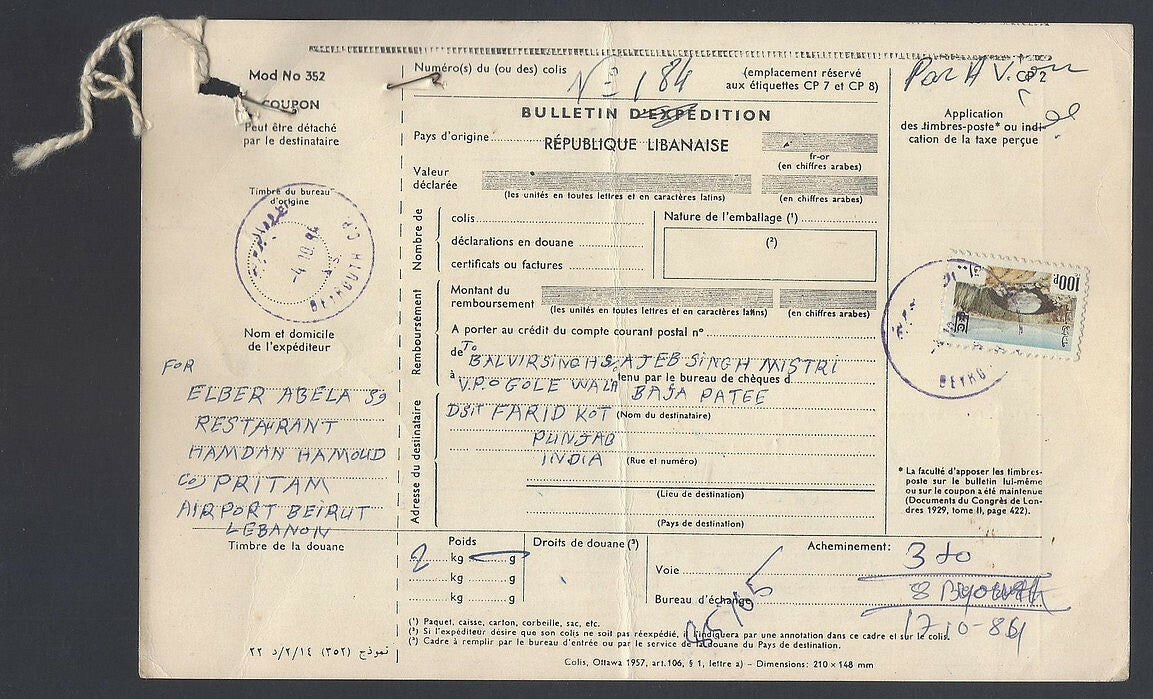 Mod No 352
COUPON
Peut être détaché
par le destinataire
Timbre du bureau
d'origine
-4.10.84
BEYROUTH
Nom et domicile
de l'expéditeur
FOR
ELBER ABELA 39
RESTAURANT
HAMDAN HAMOUD
C/O PRITAM
AIRPORT BEIRUT
LEBANON
Timbre de la douane
نموذج (٣٥٢) ٢٢ د/٢/١٤
Numéro(s) du (ou des) colis
Nº 184
(emplacement réservé
aux étiquettes CP 7 et CP 8)
BULLETIN D'EXPÉDITION
Pays d'origine
RÉPUBLIQUE LIBANAISE
fr-or
(en chiffres arabes)
Valeur
déclarée
(les unités en toutes lettres et en caractères latins)
(en chiffres arabes)
Nombre de
colis
déclarations en douane
certificats ou factures
Nature de l'emballage (¹)
(²)
Remboursement
Montant du
remboursement
(les unités en toutes lettres et en caractères latins)
(en chiffres arabes)
A porter au crédit du compte courant postal nº
de To BALVIRSINGH S. AJEB SINGH MISTRI
à V.P.O GOLE WALA tenu par le bureau de chèques d
BAJA PATEE
Adresse du destinataire
DSIT FARID KOT (Nom du destinataire)
PUNJAB
INDIA (Rue et numéro)
(Lieu de destination)
(Pays de destination)
Poids
2 kg g
kg g
kg g
Droits de douane (³)
Acheminement:
Voie
Bureau d'échange
17-10-84
(¹) Paquet, caisse, carton, corbeille, sac, etc.
(²) Si l'expéditeur désire que son colis ne soit pas réexpédié, il l'indiquera par une annotation dans ce cadre et sur le colis.
(³) Cadre à remplir par le bureau d'entrée ou par le service de la douane du Pays de destination.
Colis, Ottawa 1957, art.106, § 1, lettre a) – Dimensions: 210 × 148 mm
Par A V
CP 2
Application
des timbres-poste* ou indi-
cation de la taxe perçue
100p
BEYRO
* La faculté d'apposer les timbres-
poste sur le bulletin lui-même
ou sur le coupon a été maintenue
(Documents du Congrès de Lon-
dres 1929, tome II, page 422).